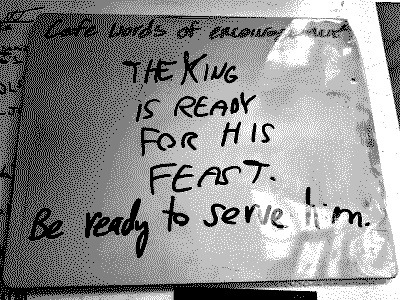 Cafe words of encouragement
THE KING
IS READY
FOR HIS
FEAST.
Be ready to serve him.